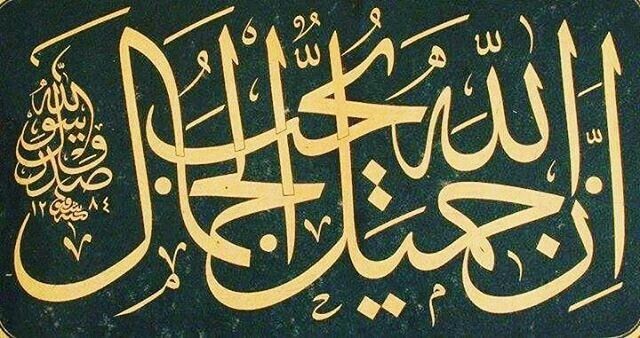 اِنَّ اللّٰهَ جميل يُحِبُّ الجمال
صدق رسول اللّٰه
١٢٨٤